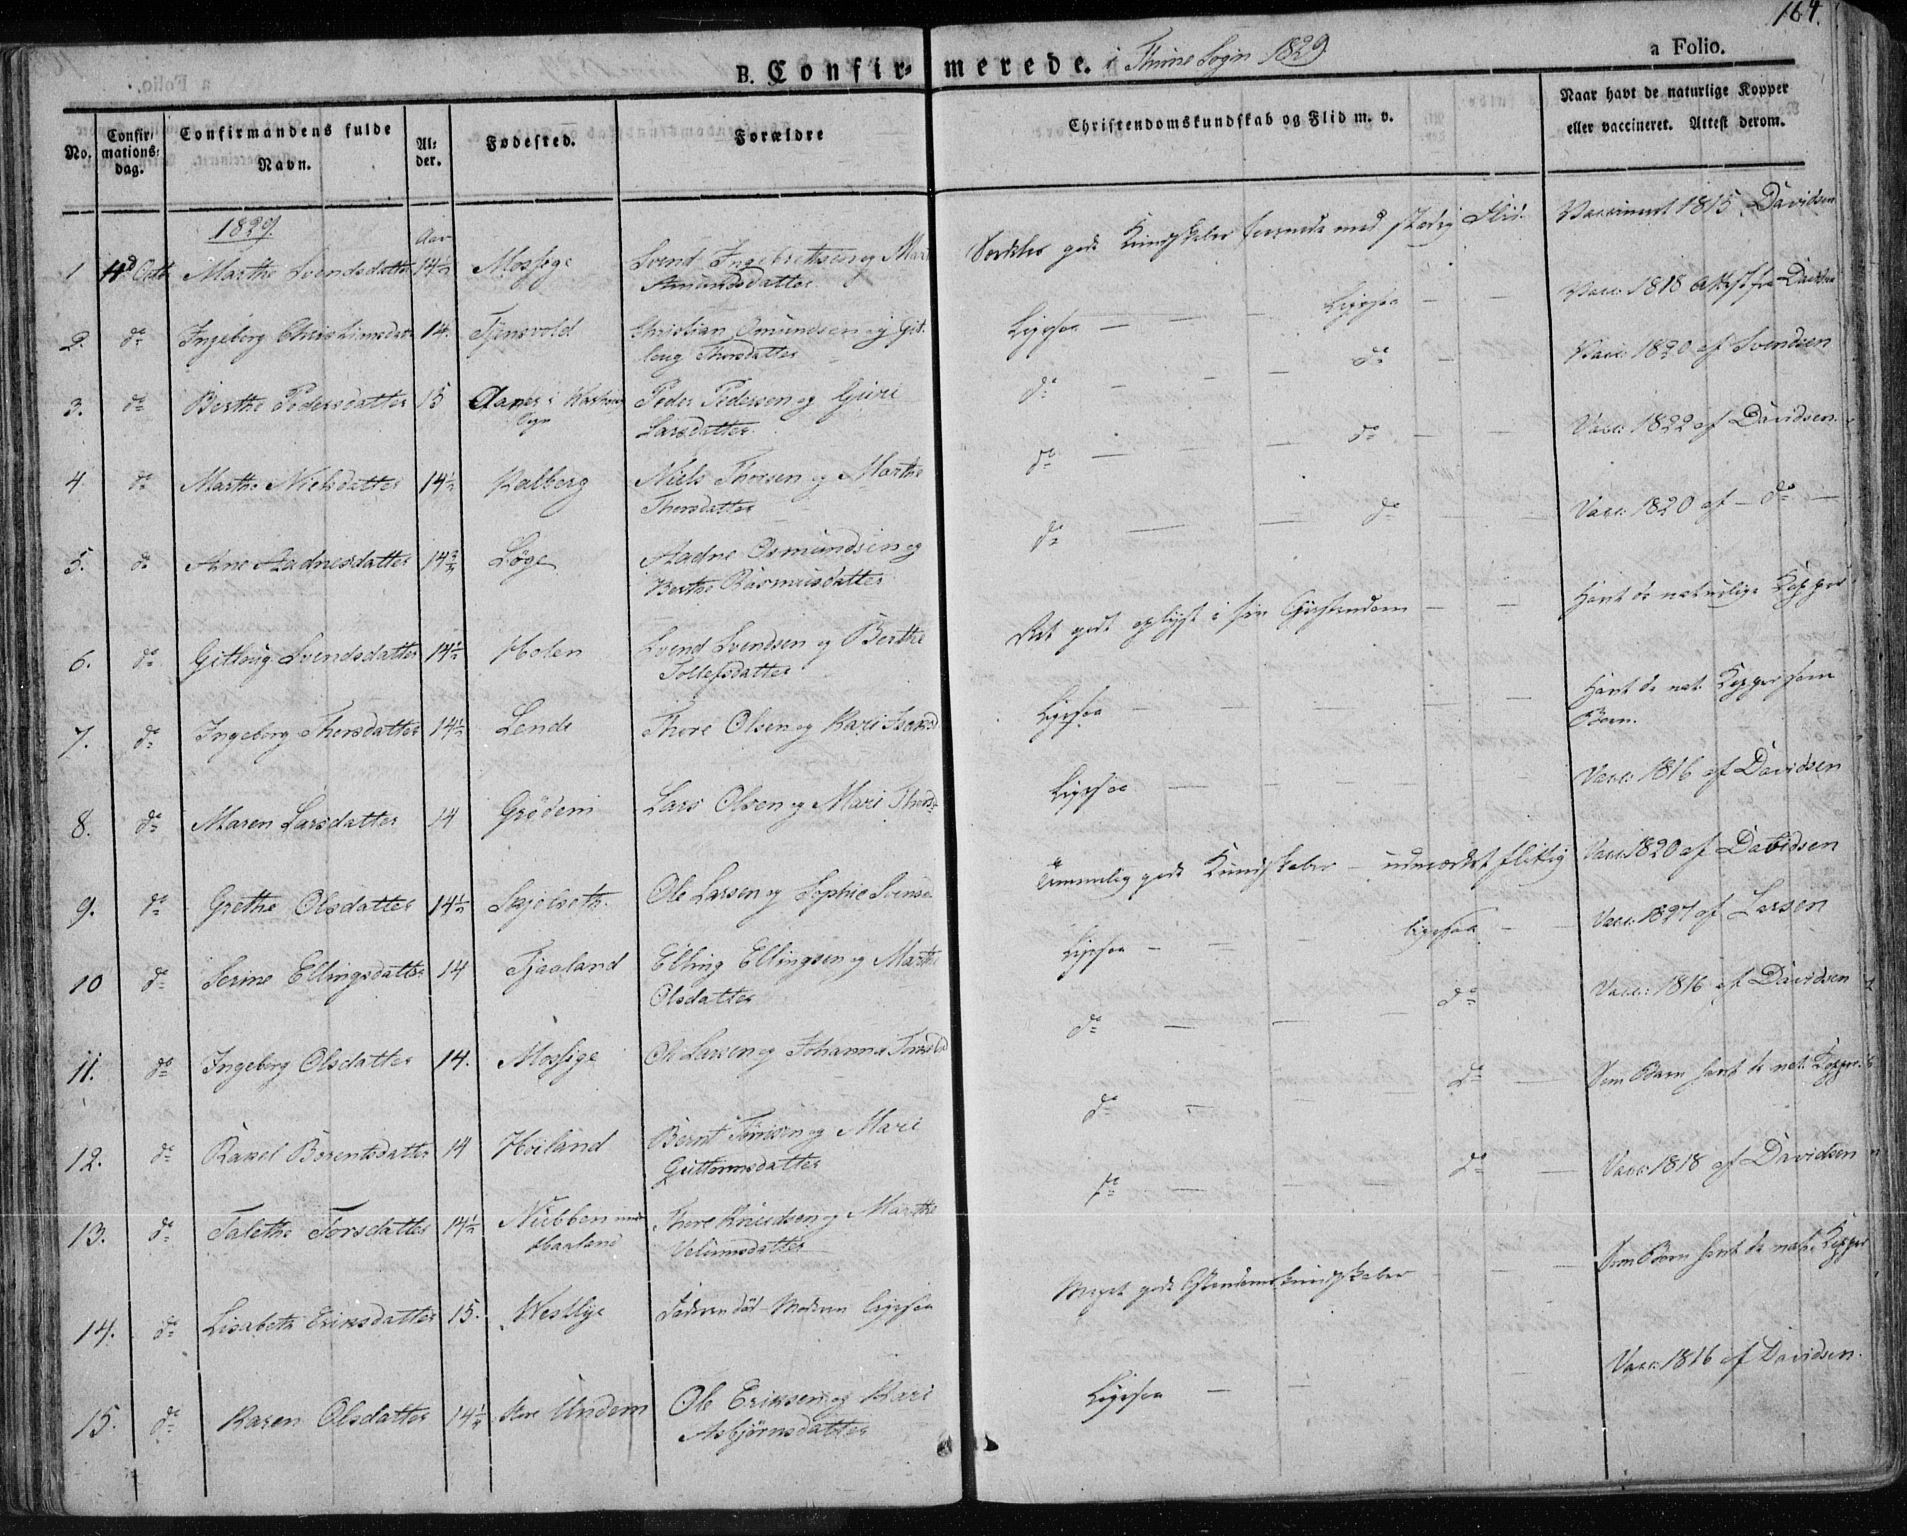 164.
B. Confirmerede. i Thime Sogn 1829
a Folio.
No. Confirmationsdag. Confirmandens fulde Navn. Alder. Fødested. Forældre Christendomskundskab og Flid m. v. Naar havt de naturlige Kopper eller vaccineret. Attest derom.
1829. Aar
1 4d Octb Marthe Svendsdatter 14½ Mossige Svend Ingebretsen og Mari Særdeles gode Kundskaber forenede med stadig Flid. Vaccineret 1815. Davidsen
Amundsdatter
2. do Ingeborg Christiansdatr 14. Tjensvold Christian Omundsen og Git- Ligesaa — — — Ligesaa — — Vacc: 1818 Attest fra Davidsen
laug Thorsdatter
3. do Berthe Pedersdatter 15 Aanes i Peder Pedersen og Guri do — — — do — Vacc: 1820 af Svendsen
Sogn Larsdatter
4. do Marthe Nielsdatter 14½ Kalberg Niels Thorsen og Marthe do — — — do — — Vacc: 1822 af Davidsen
Thorsdatter
5. do Ane Aadnesdatter 14¾ Løge Aadne Osmundsen og do — — do — — Vacc: 1820 af — do —
Berthe Rasmusdatter
6. do Gitlaug Svendsdatter 14½ Holen Svend Svendsen og Berthe Ret godt oplyst i sin Christendom — — Havt de naturlige Kopper
Tollefsdatter
7. do Ingeborg Thorsdatter 14½ Lende Thore Olsen og Kari Ligesaa — — — — Havt de nat. Kopper som
Barn.
8. do Maren Larsdatter 14 Grødem Lars Olsen og Mari Thorsd. Ligesaa — — — Vacc: 1816 af Davidsen
9. do Grethe Olsdatter 14½ Skjelseth Ole Larsen og Sophie Svensd. Temmelig gode Kundskaber — udmærket flittig Vacc: 1820 af Davidsen
10 do Serine Ellingsdatter 14 Tjaaland Elling Ellingsen og Marthe Ligesaa — — — ligesaa — — Vacc: 1827 af Larsen
Olsdatter
11. do Ingeborg Olsdatter 14. Mossige Ole Larsen og Johanna do — — — do Vacc: 1816 af Davidsen
12. do Raxel Borentsdatter 14 Høiland Bernt Tørrisen og Mari do — — do — Som Barn havt de nat. Kopper.
Guttormsdatter
13. do Talethe Torsdatter 14½ Nubben under Thore Knudsen og Marthe do — — — do — Vacc: 1818 af Davidsen
Haaland Velumsdatter
14. do Lisabeth Eriksdatter 15. Westlye Faderen død — Moderen ligesaa Meget gode Christendomskundskaber — — Som Barn havt de nat. Kopper
15. do Karen Olsdatter 14½ Store Undem Ole Eriksen og Kari Ligesaa — — Vacc: 1816 af Davidsen.
Asbjørnsdatter